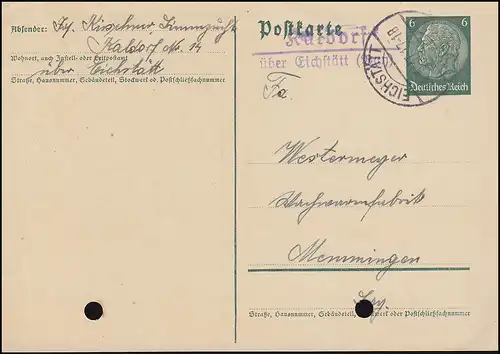 Absender: Jos. Kirschner, Bienenzucht
Kaldorf No. 14
Wohnort, auch Zustell- oder Leitpostamt
über Eichstätt
Straße, Hausnummer, Gebäudeteil, Stockwerk od. Postschließfachnummer
Postkarte
Kaldorf
über Eichstätt
EICHSTÄTT
6 6
Deutsches Reich
Fa.
Westermeyer
Wachswarenfabrik
Memmingen
Bay.
Straße, Hausnummer, Gebäudeteil, Stockwerk oder Postschließfachnummer